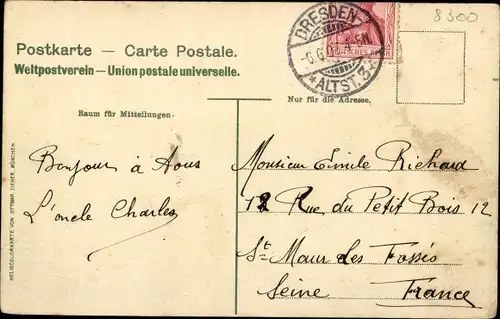 8300
Postkarte — Carte Postale.
Weltpostverein — Union postale universelle.
DRESDEN-
*ALTST.
Raum für Mitteilungen.
Nur für die Adresse.
Bonjour à Tous
L'oncle Charles
Monsieur Emile Richard
12 Rue du Petit Bois 12
St Maur des Fossés
Seine France
HELIOCOLORKARTE VON OTTMAR ZIEHER, MÜNCHEN.